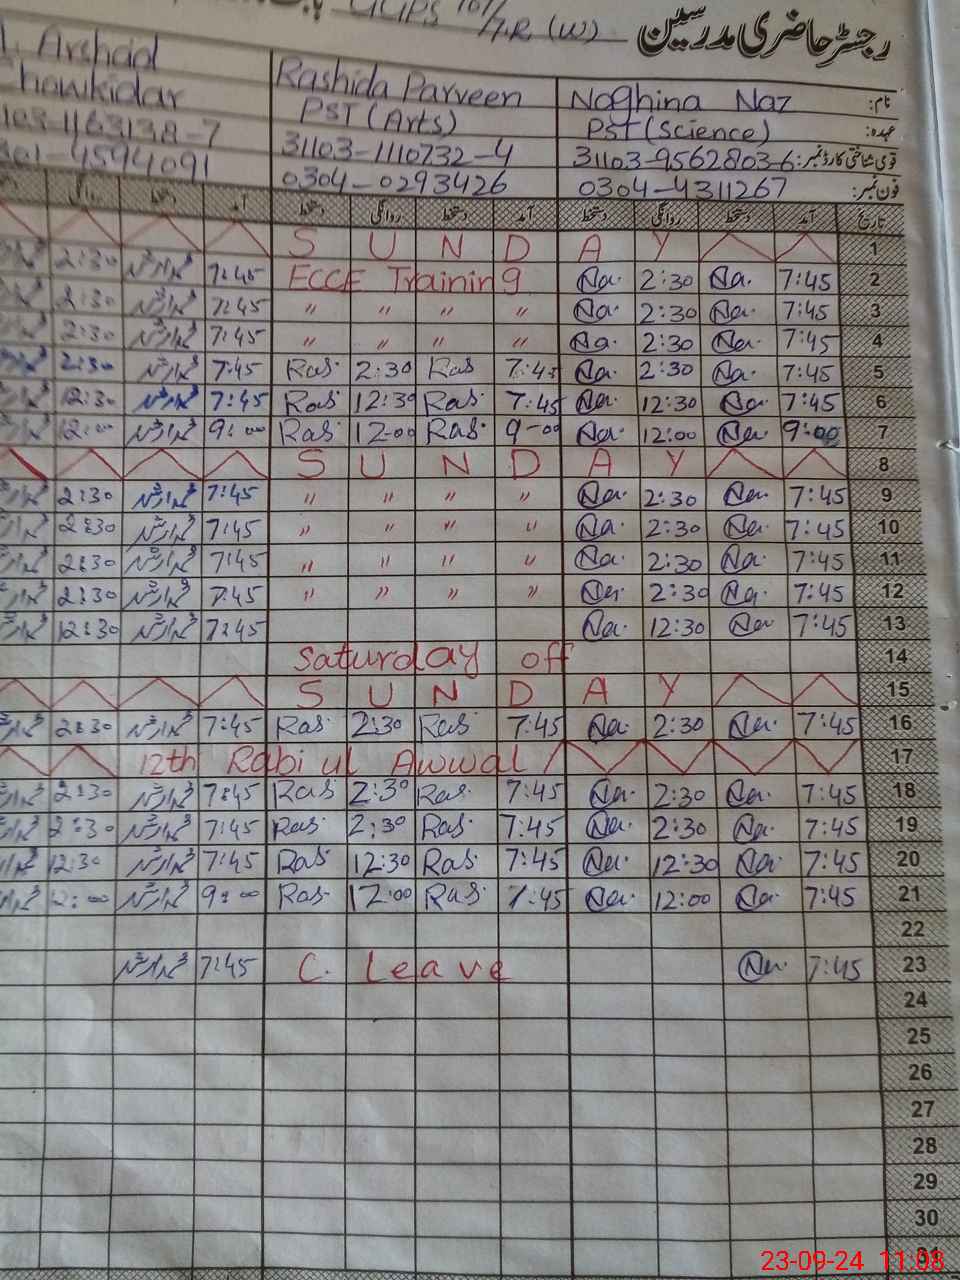 رجسٹر حاضری مدرسین GGPS 107/7.R (W)
نام: Noghina Naz Rashida Parveen Arshad
عہدہ: PST (Science) PST (Arts) Chowkidar
قومی شناختی کارڈ نمبر: 31103-9562803-6 31103-1110732-4 1103-1163138-7
فون نمبر: 0304-4311267 0304-0293426 301-4594091
تاریخ آمد دستخط روانگی دستخط آمد دستخط روانگی دستخط آمد دستخط روانگی
S U N D A Y 1
2:30 7:45 ECCE Training Na. 2:30 Na. 7:45 2
2:30 7:45 " " " " Na. 2:30 Na. 7:45 3
2:30 7:45 " " " " Na. 2:30 Na. 7:45 4
2:30 7:45 Ras. 2:30 Ras 7:45 Na. 2:30 Na. 7:45 5
12:30 7:45 Ras 12:30 Ras 7:45 Na. 12:30 Na. 7:45 6
12:00 9:00 Ras 12-00 Ras 9-00 Na. 12:00 Na 9:00 7
S U N D A Y 8
2:30 7:45 " " " " Na. 2:30 Na. 7:45 9
2:30 7:45 " " " " Na. 2:30 Na. 7:45 10
2:30 7:45 " " " " Na. 2:30 Na. 7:45 11
2:30 7:45 " " " " Na. 2:30 Na. 7:45 12
12:30 7:45 Na. 12:30 Na 7:45 13
Saturday off 14
S U N D A Y 15
2:30 7:45 Ras 2:30 Ras 7:45 Na. 2:30 Na. 7:45 16
12th Rabi ul Awwal 17
2:30 7:45 Ras 2:30 Ras. 7:45 Na. 2:30 Na. 7:45 18
2:30 7:45 Ras. 2:30 Ras. 7:45 Na. 2:30 Na. 7:45 19
12:30 7:45 Ras 12:30 Ras. 7:45 Na. 12:30 Na. 7:45 20
12:00 9:00 Ras. 12:00 Ras. 7:45 Na. 12:00 Na. 7:45 21
22
7:45 C. Leave Na. 7:45 23
24
25
26
27
28
29
30
31
23-09-24 11:08